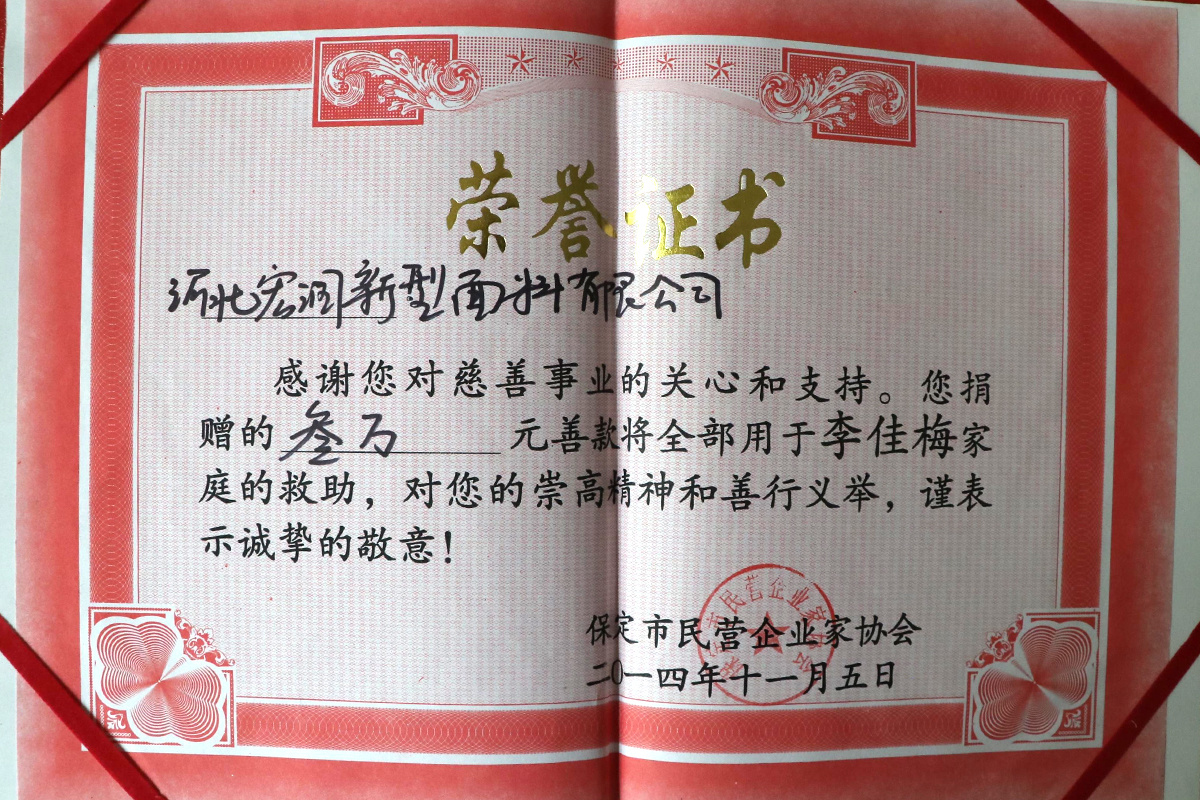 荣誉证书
河北宏润新型面料有限公司
感谢您对慈善事业的关心和支持。您捐
赠的叁万元善款将全部用于李佳梅家
庭的救助，对您的崇高精神和善行义举，谨表
示诚挚的敬意！
保定市民营企业家协会
二0一四年十一月五日
保定市民营企业家协会